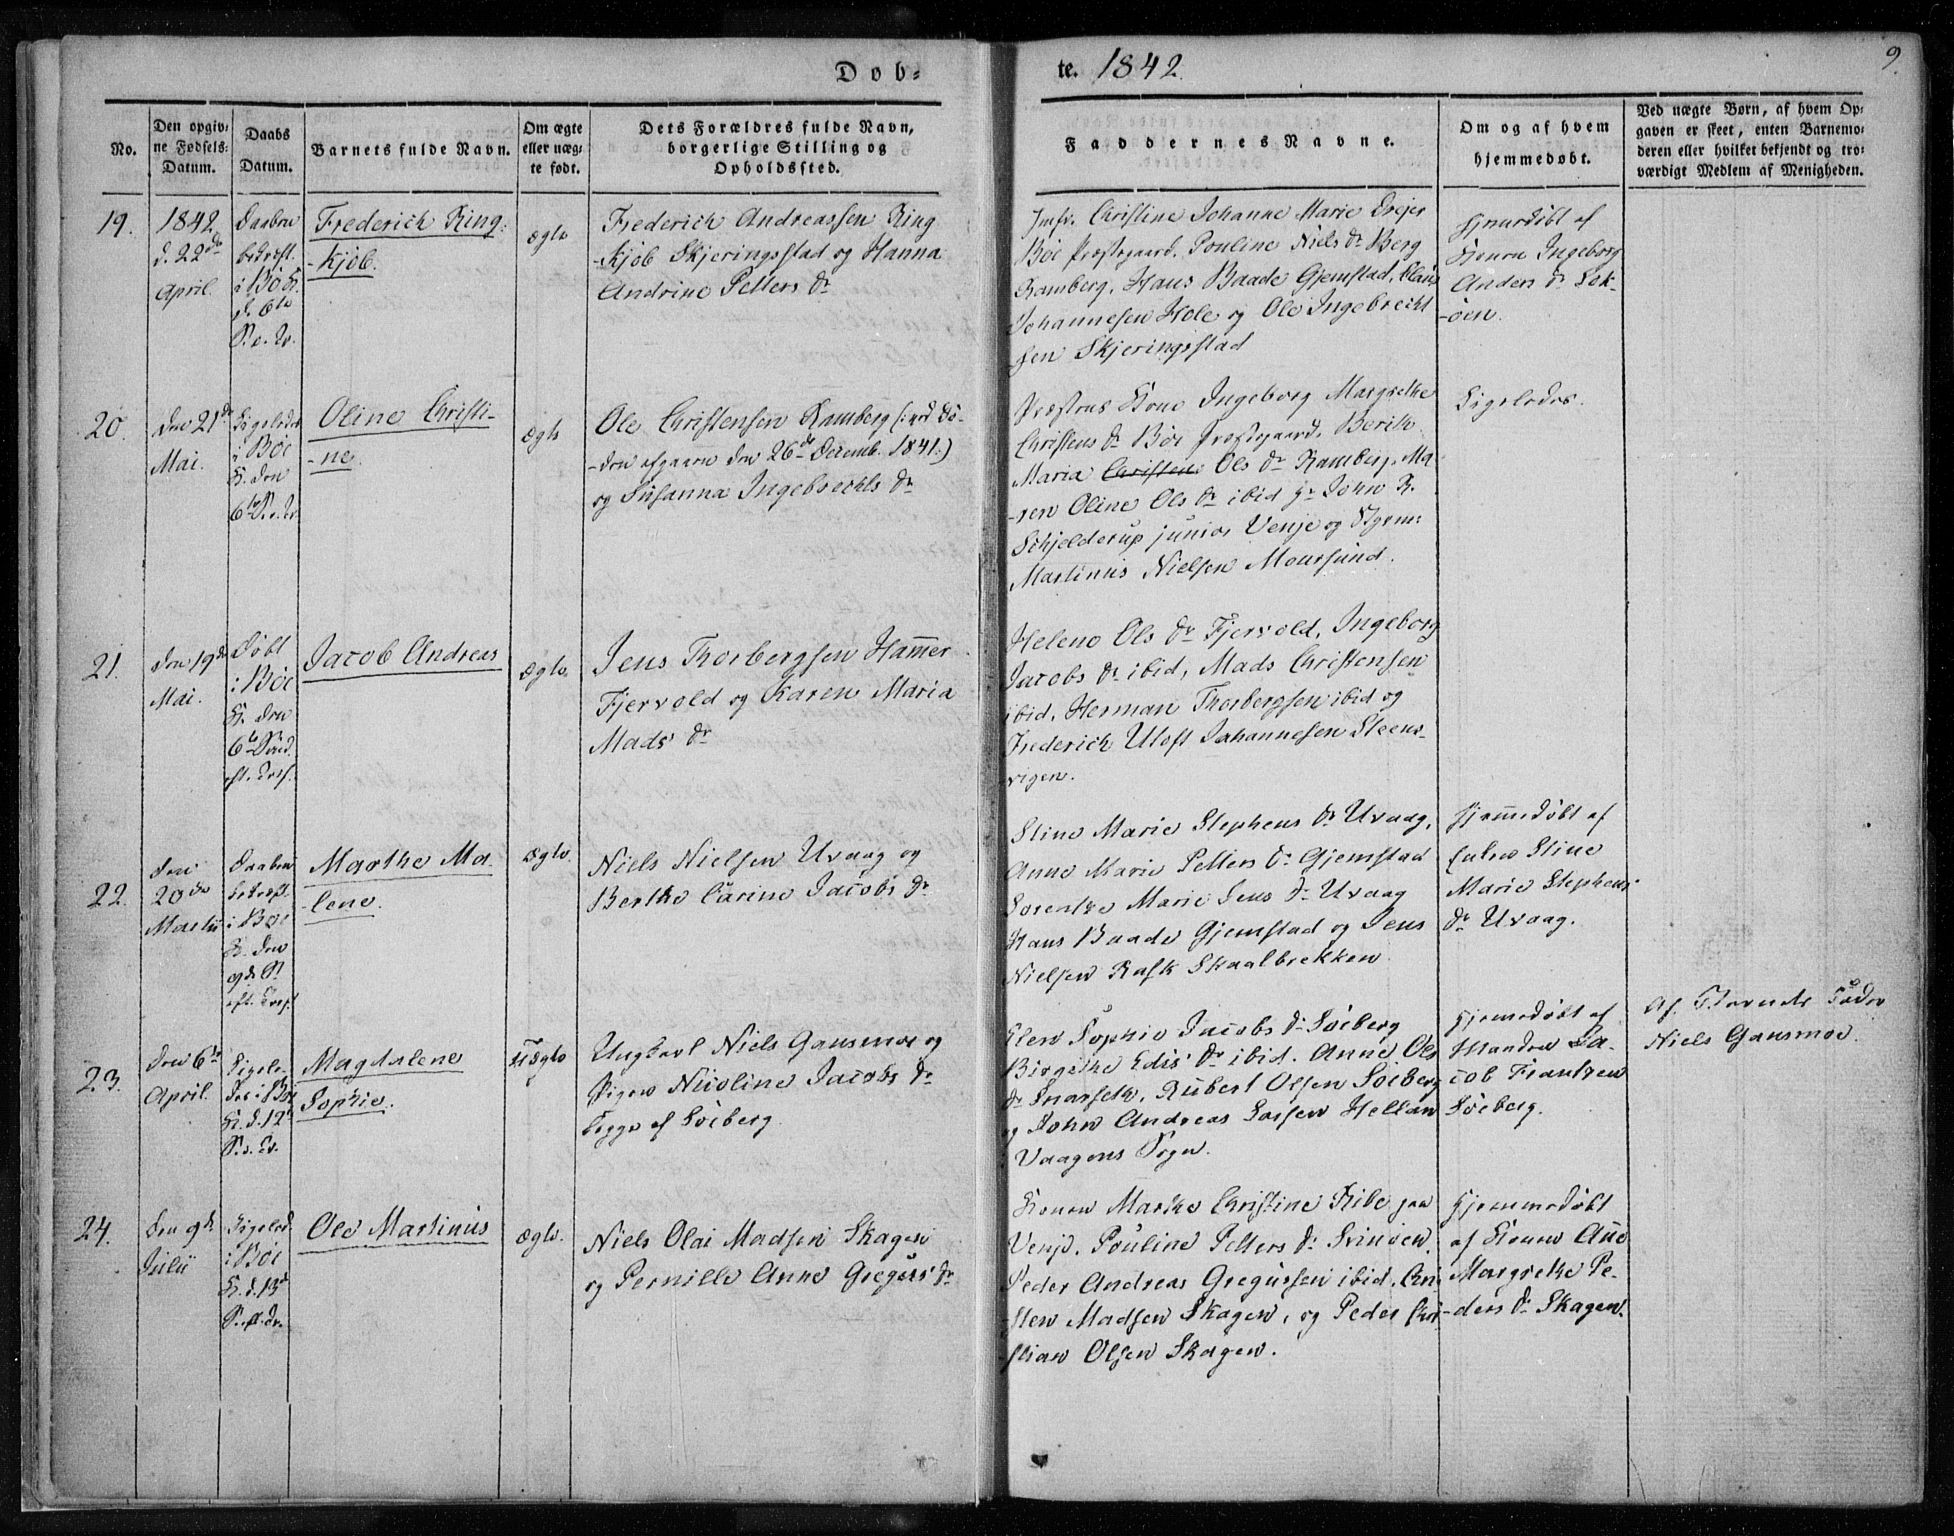 Døb-
te. 1842.
9.
No.
Den opgiv-
ne Fødsels-
Datum.
Daabs
Datum.
Barnets fulde Navn.
Om ægte
eller uæg-
te født.
Dets Forældres fulde Navn,
borgerlige Stilling og
Opholdssted.
Faddernes Navne.
Om og af hvem
hjemmedøbt.
Ved uægte Børn, af hvem Op-
gaven er skeet, enten Barnemo-
deren eller hvilket bekjendt og tro-
værdigt Medlem af Menigheden.
19.
1842
d. 22de
April.
Daaben
bekræft.
i Böe K.
d. 6te
Frederich Ring-
-kjöb.
ægte
Frederich Andreassen Ring
-kjöb Skjeringsstad og Hanna
Andrine Petters Dr
Jmfr. Christine Johanne Marie Drejer
Böe Præstegaard, Pouline Niels Dr Berg
Ramberg, Hans Baade Gjemstad, Claus
Johannesen Hole og Ole Ingebrecht
sen Skjeringsstad
Hjemedöbt af
Konen Ingeborg
Anders Dr
-öen.
20.
den 21de
Mai.
Ligeledes
i Böe
K. den
6te
Oline Christi-
-ne.
ægte
Ole Christensen Ramberg (: ved Dö-
-den afgaaen den 26de Decemb. 1841.)
og Susanna Ingebrechts Dr
Præstens Kone Ingeborg Margrethe
Christens Dr Böe Præstegaard, Berith
Maria Christens Ols Dr Ramberg, Ma-
-ren Oline Ols Dr ibid Hr John R.
Schjelderup junior Venje og Styrm:
Martinus Nielsen Moursund.
Ligeledes.
21.
den 19de
Mai.
Döbt
i Böe
K. den
6te Sönd.
eft. Tref.
Jacob Andreas
ægte.
Jens Thorbergsen Hammer
Fjervold og Karen Maria
Mads Dr
Helene Ols Dr Fjervold, Ingeborg
Jacobs Dr ibid, Mads Christensen
ibid, Herman Thorbergsen ibid og
Frederich Utoft Johannesen Steens-
vigen.
22.
den
20de
Martii
Daaben
bekræft.
i Böe
K. den
9de S.
eft. Tref.
Marthe Ma-
-lene.
ægte.
Niels Nielsen Uvaag og
Berthe Carine Jacobs Dr
Stine Marie Stephens Dr Uvaag,
Anne Marie Petters Dr Gjemstad
Sorenthe Marie Jens Dr Uvaag
Hans Baade Gjemstad og Jens
Nielsen Rask Skaalbrekken
Hjemmedöbt af
Enken Stine
Marie Stephens
Dr Uvaag.
23.
den 6te
April.
Ligele-
des i Böe
K. d. 12te
Magdalene
Sophie.
uægte
Ungkarl Niels Gausmoe og
Pigen Nicoline Jacobs Dr
begge af Söeberg
Elen Sophie Jacobs Dr Söeberg
Birgithe Edis Dr ibid. Anne Ols
Dr Snarseth, Rubert Olsen Söeberg
og John Andreas Larsen Hellan
Vaagens Sogn.
Hjemedöbt af
Manden Ja-
cob Frantzen
Söeberg.
Af Barnets Fader
Niels Gausmoe.
24.
den 9de
Julii
Ligeled.
i Böe
K. d. 13de
Ole Martinus
ægte.
Niels Olai Madsen Skagen
og Pernille Anne Gregers Dr
Konen Marthe Christine Ribe paa
Venje, Pouline Petters Dr Svinöen,
Peder Andreas Gregussen ibid, Chri-
-sten Madsen Skagen, og Peder Chri-
stian Olsen Skagen.
Hjemmedöbt
af Konen Ane
Margrethe Pe-
-ders Dr Skagen.